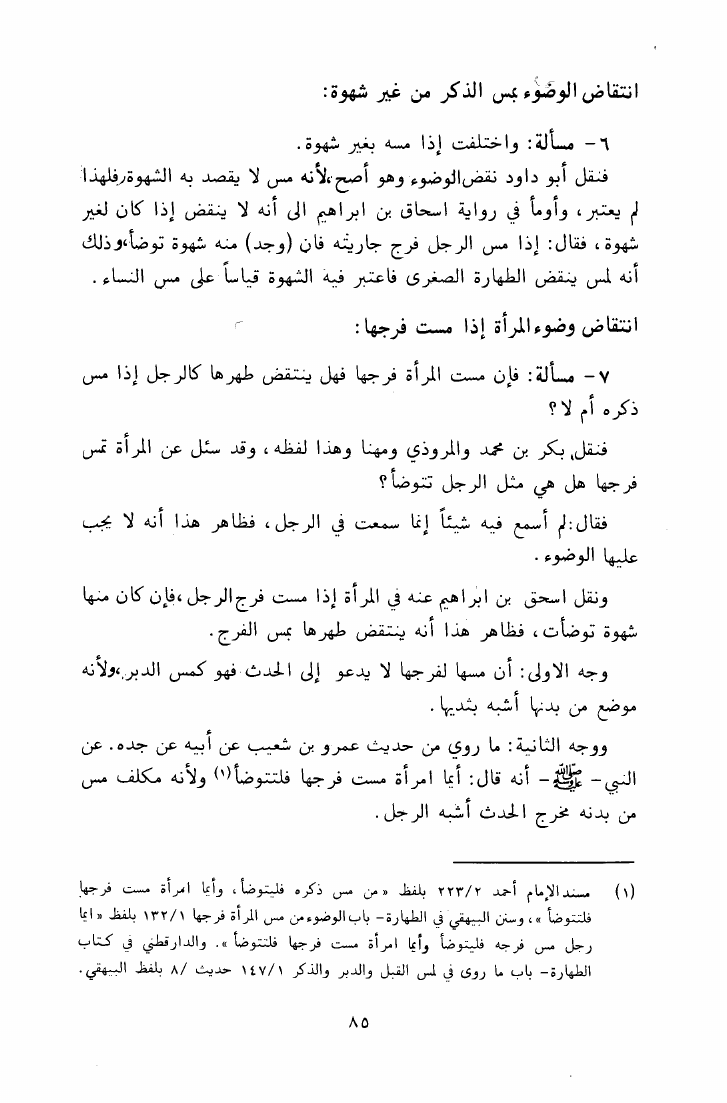 انتقاض الوضوء بمس الذكر من غير شهوة:
٦ - مسألة: واختلفت إذا مسه بغير شهوة.
فنقل أبو داود نقض الوضوء وهو أصح، لأنه مس لا يقصد به الشهوة، فلهذا
لم يعتبر، وأومأ في رواية اسحاق بن ابراهيم الى أنه لا ينقض إذا كان لغير
شهوة، فقال: إذا مس الرجل فرج جاريته فان (وجد) منه شهوة توضأ، وذلك
أنه لمس ينقض الطهارة الصغرى فاعتبر فيه الشهوة قياساً على مس النساء.
انتقاض وضوء المرأة إذا مست فرجها:
٧ - مسألة: فإن مست المرأة فرجها فهل ينتقض طهرها كالرجل إذا مس
ذكره أم لا؟
فنقل بكر بن محمد والمروذي ومهنا وهذا لفظه، وقد سئل عن المرأة تمس
فرجها هل هي مثل الرجل تتوضأ؟
فقال: لم أسمع فيه شيئاً إنما سمعت في الرجل، فظاهر هذا أنه لا يجب
عليها الوضوء.
ونقل اسحق بن ابراهيم عنه في المرأة إذا مست فرج الرجل، فإن كان منها
شهوة توضأت، فظاهر هذا أنه ينتقض طهرها بمس الفرج.
وجه الاولى: أن مسها لفرجها لا يدعو إلى الحدث فهو كمس الدبر، ولأنه
موضع من بدنها أشبه بثديها.
ووجه الثانية: ما روي من حديث عمرو بن شعيب عن أبيه عن جده. عن
النبي - ﷺ - أنه قال: أيما امرأة مست فرجها فلتتوضأ(١) ولأنه مكلف مس
من بدنه مخرج الحدث أشبه الرجل.
(١) مسند الإمام أحمد ٢٢٣/٢ بلفظ «من مس ذكره فليتوضأ، وأيما امرأة مست فرجها
فلتتوضأ»، وسنن البيهقي في الطهارة - باب الوضوء من مس المرأة فرجها ١٣٢/١ بلفظ «ايما
رجل مس فرجه فليتوضأ وأيما امرأة مست فرجها فلتتوضأ». والدارقطني في كتاب
الطهارة - باب ما روى في لمس القبل والدبر والذكر ١٤٧/١ حديث /٨ بلفظ البيهقي.
٨٥